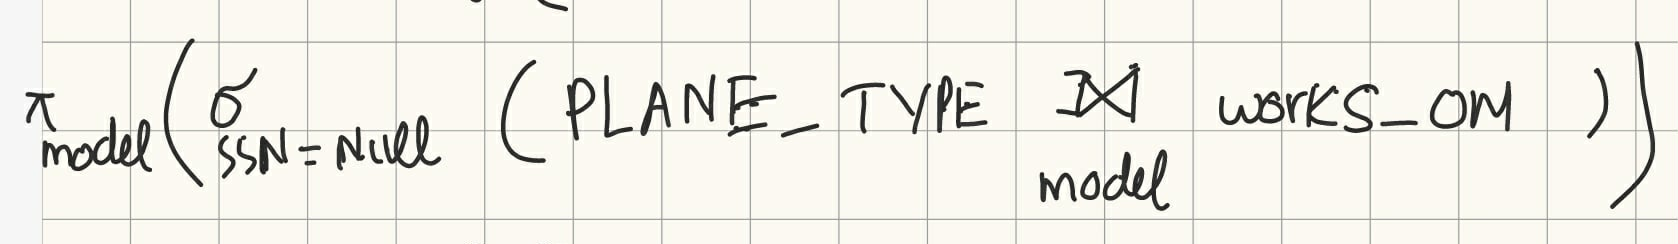 π model ( σ SSN = NUll ( PLANE_TYPE ⟕ model WORKS_OM ) )